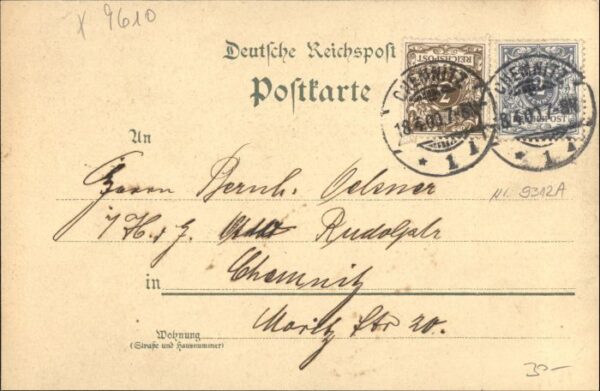 X 9610
Deutsche Reichspost
Postkarte
REICHSPOST
CHEMNITZ
18.4.00.7-8N
* 1
REICHSPOST
CHEMNITZ
18.4.00.7-8N
* 1
An
Herrn Bernh. Oelsner
Rudolph
No. 9312A
in Chemnitz
Moritz Str 20.
Wohnung
(Straße und Hausnummer)
30-